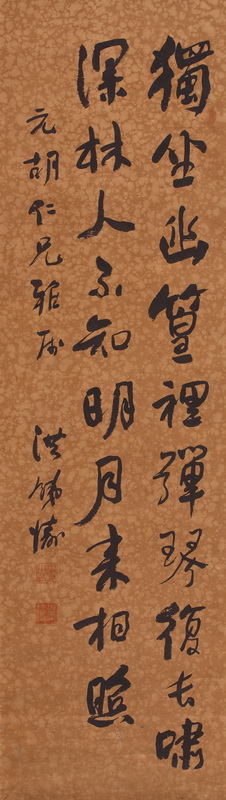 獨坐幽篁裡彈琴復長嘯
深林人不知明月來相照
元胡仁兄雅屬
洪